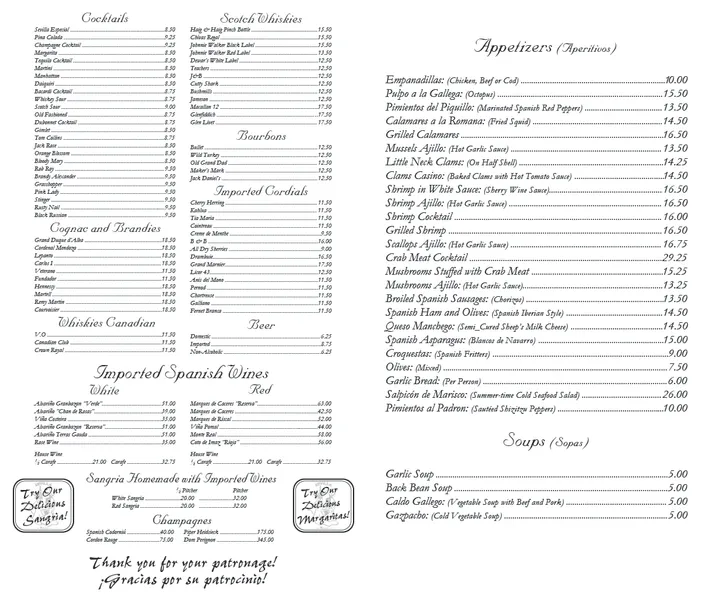 Cocktails
Sevilla Especial 8.50
Pina Colada 9.25
Champagne Cocktail 9.25
Margarita 8.50
Tequila Cocktail 8.50
Martini 8.50
Manhattan 8.50
Daiquiri 8.50
Bacardi Cocktail 8.75
Whiskey Sour 8.75
Scotch Sour 9.00
Old Fashioned 8.75
Dubonnet Cocktail 8.75
Gimlet 8.50
Tom Collins 8.75
Jack Rose 8.50
Orange Blossom 8.50
Bloody Mary 8.50
Rob Roy 9.50
Brandy Alexander 9.50
Grasshopper 9.50
Pink Lady 9.50
Stinger 9.50
Rusty Nail 9.50
Black Russian 9.50
Cognac and Brandies
Grand Duque d'Alba 18.50
Cardenal Mendoza 18.50
Lepanto 18.50
Carlos I 18.50
Veterano 11.50
Fundador 11.50
Hennessy 18.50
Martell 18.50
Remy Martin 18.50
Courvoisier 18.50
Whiskies Canadian
V.O 11.50
Canadian Club 11.50
Crown Royal 11.50
Scotch Whiskies
Haig & Haig Pinch Bottle 15.50
Chivas Regal 15.50
Johnnie Walker Black Label 15.50
Johnnie Walker Red Label 15.50
Dewar's White Label 12.50
Teachers 12.50
J&B 12.50
Cutty Shark 12.50
Bushmills 12.50
Jameson 12.50
Macallan 12 17.50
Glenfiddich 17.50
Glen Livet 17.50
Bourbons
Bullet 12.50
Wild Turkey 12.50
Old Grand Dad 12.50
Maker's Mark 12.50
Jack Daniel's 12.50
Imported Cordials
Cherry Herring 11.50
Kahlua 11.50
Tia Maria 11.50
Cointreau 11.50
Creme de Menthe 9.50
B & B 16.00
All Dry Sherries 9.00
Drambuie 16.50
Grand Marnier 17.50
Licor 43 12.50
Anis del Mono 11.50
Pernod 11.50
Chartreuse 11.50
Galliano 11.50
Fernet Branca 11.50
Beer
Domestic 6.25
Imported 8.75
Non-Alcoholic 6.25
Imported Spanish Wines
White
Albariño Granbazan "Verde" 51.00
Albariño "Chan de Rosas" 39.00
Viña Castina 33.00
Albariño Granbazan "Reserva" 51.00
Albariño Terras Gauda 51.00
Rose Wine 35.00
House Wine
½ Carafe 21.00 Carafe 32.75
Red
Marques de Caceres "Reserva" 63.00
Marques de Caceres 42.50
Marques de Riscal 52.00
Viña Pomal 44.00
Monte Real 58.00
Coto de Imaz "Rioja" 56.00
House Wine
½ Carafe 21.00 Carafe 32.75
Try Our
Delicious
Sangria!
Sangria Homemade with Imported Wines
½ Pitcher Pitcher
White Sangria 20.00 32.00
Red Sangria 20.00 32.00
Champagnes
Spanish Codorniú 40.00 Piper Heidsieck 175.00
Cordon Rouge 75.00 Dom Perignon 345.00
Try Our
Delicious
Margaritas!
Thank you for your patronage!
¡Gracias por su patrocinio!
Appetizers (Aperitivos)
Empanadillas: (Chicken, Beef or Cod) 10.00
Pulpo a la Gallega: (Octopus) 15.50
Pimientos del Piquillo: (Marinated Spanish Red Peppers) 13.50
Calamares a la Romana: (Fried Squid) 14.50
Grilled Calamares 16.50
Mussels Ajillo: (Hot Garlic Sauce) 13.50
Little Neck Clams: (On Half Shell) 14.25
Clams Casino: (Baked Clams with Hot Tomato Sauce) 14.50
Shrimp in White Sauce: (Sherry Wine Sauce) 16.50
Shrimp Ajillo: (Hot Garlic Sauce) 16.50
Shrimp Cocktail 16.00
Grilled Shrimp 16.50
Scallops Ajillo: (Hot Garlic Sauce) 16.75
Crab Meat Cocktail 29.25
Mushrooms Stuffed with Crab Meat 15.25
Mushrooms Ajillo: (Hot Garlic Sauce) 13.25
Broiled Spanish Sausages: (Chorizos) 13.50
Spanish Ham and Olives: (Spanish Iberian Style) 14.50
Queso Manchego: (Semi_Cured Sheep's Milk Cheese) 14.50
Spanish Asparagus: (Blancos de Navarro) 15.00
Croquestas: (Spanish Fritters) 9.00
Olives: (Mixed) 7.50
Garlic Bread: (Per Person) 6.00
Salpicón de Marisco: (Summer-time Cold Seafood Salad) 26.00
Pimientos al Padron: (Sautéed Shizitzu Peppers) 10.00
Soups (Sopas)
Garlic Soup 5.00
Back Bean Soup 5.00
Caldo Gallego: (Vegetable Soup with Beef and Pork) 5.00
Gazpacho: (Cold Vegetable Soup) 5.00